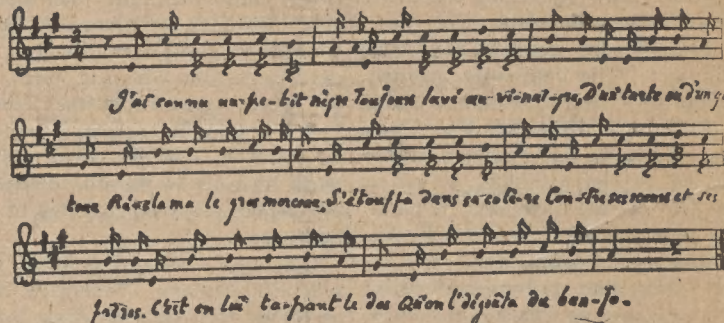 J'ai connu un pe-tit nègre Toujours lavé au vi-nai-gre, D'un' tarte ou d'un g
teau Réclama le gros morceau, S'étouffa dans sa colè-re Con-tre ses sœurs et ses
frères. C'est en lui ta-pant le dos Qu'on l'dégoûta du ban-jo.